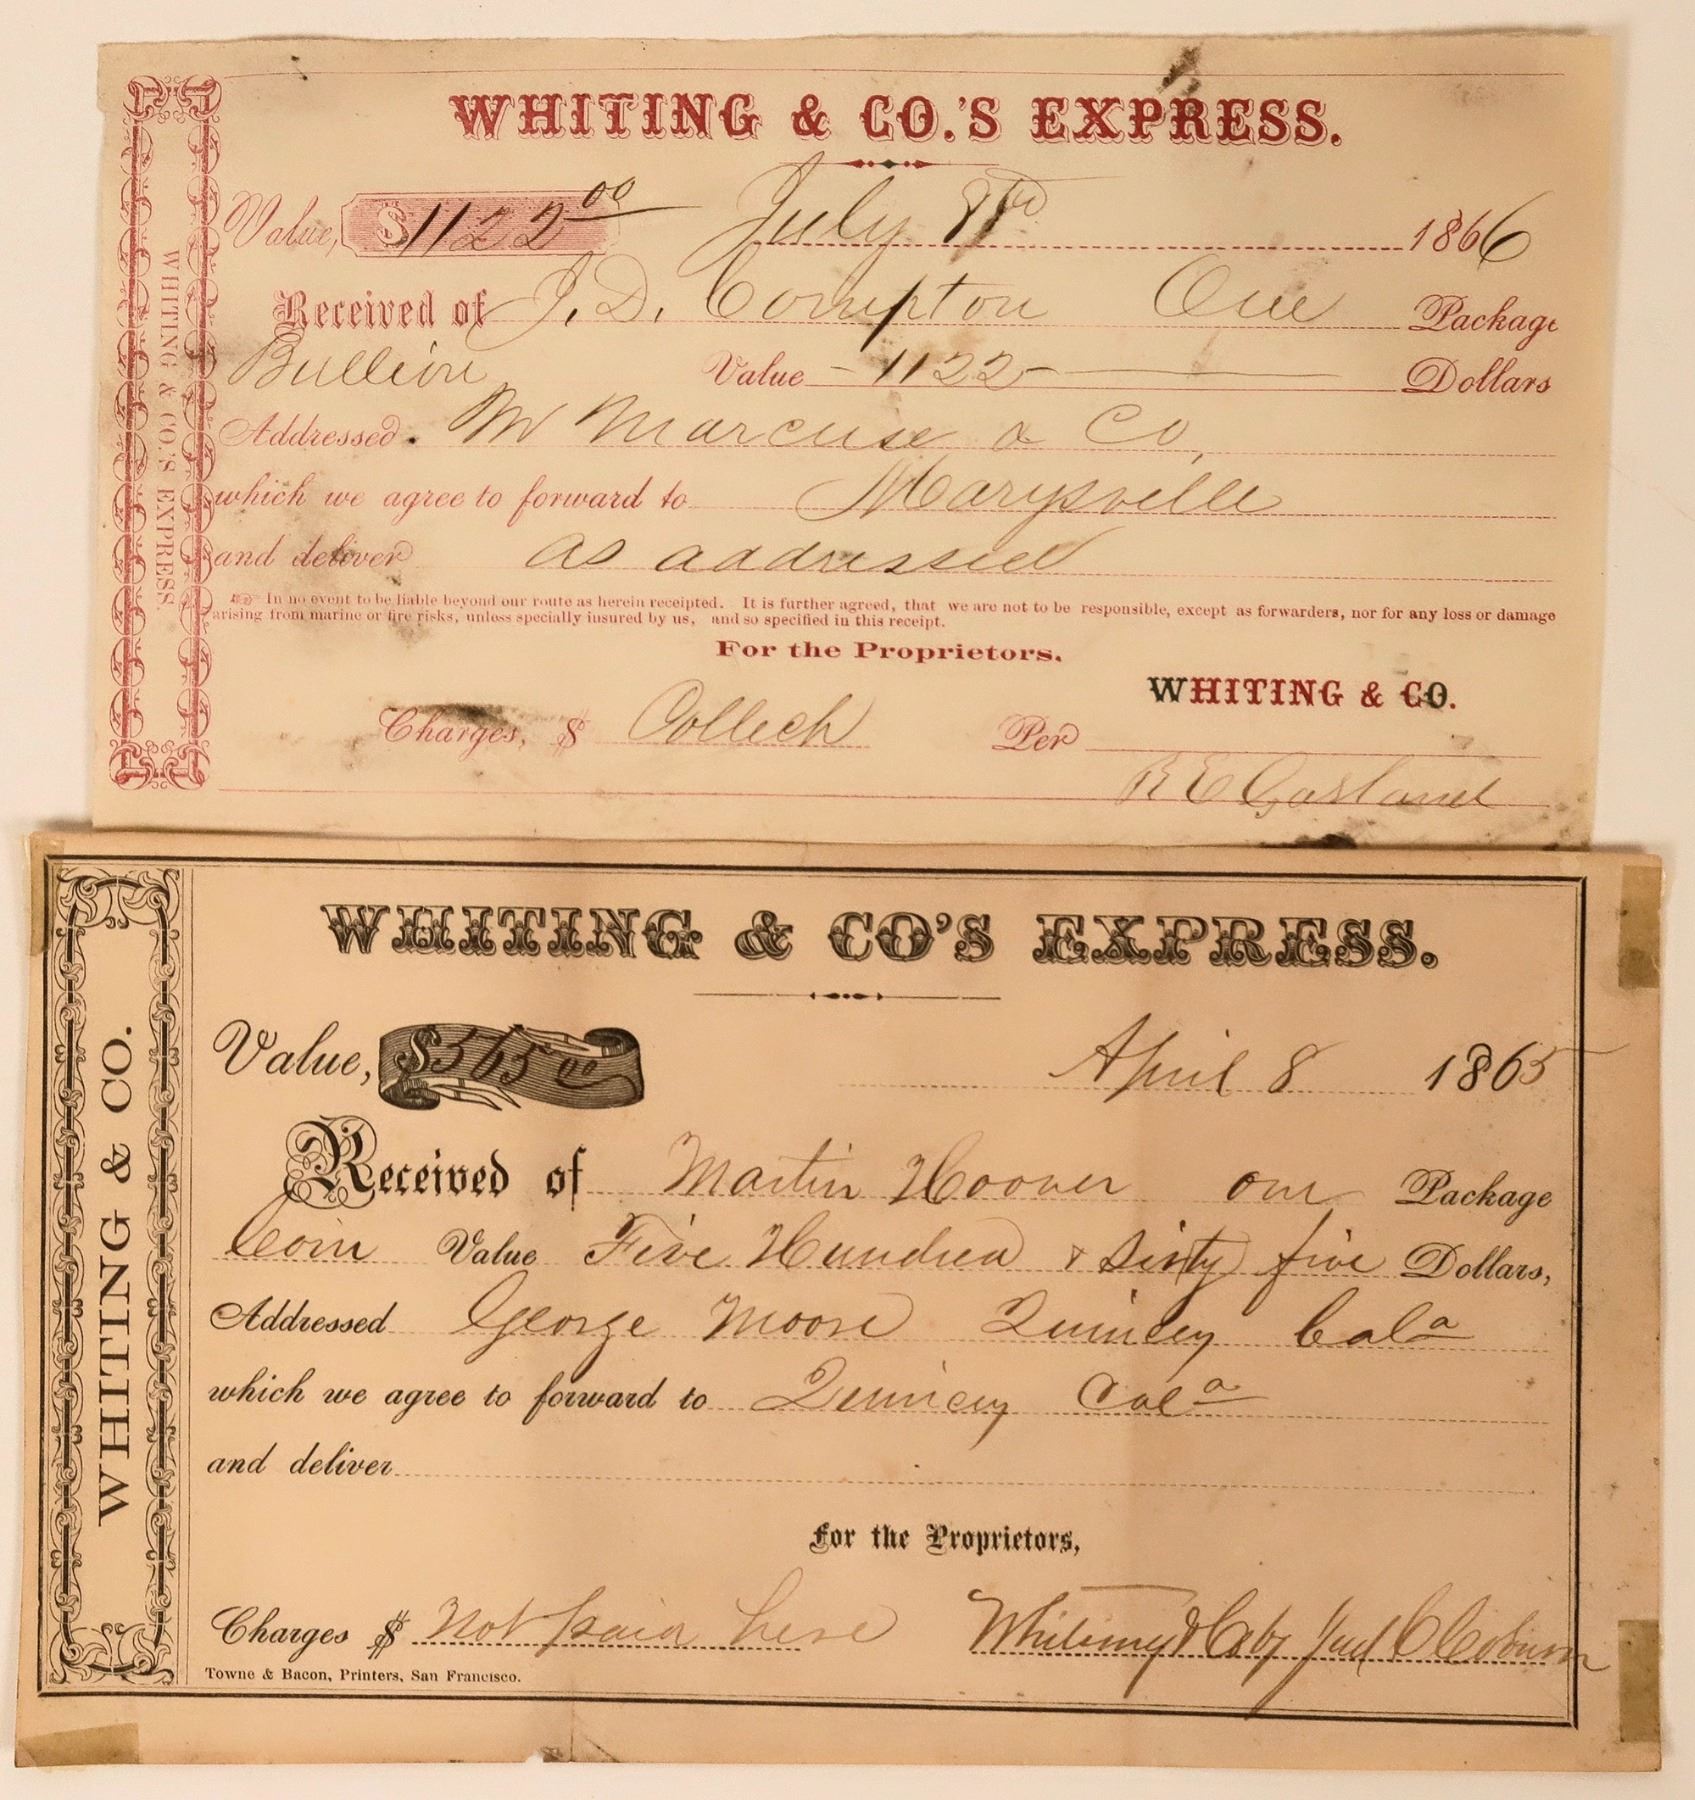 WHITING & CO.'S EXPRESS.
Value, $1122 00 July 1866
Received of J. D. Compton One Package
Bullion Value - 1122 - Dollars
Addressed. M Marcuse & Co,
which we agree to forward to Marysville
and deliver as addressed
In no event to be liable beyond our route as herein receipted. It is further agreed, that we are not to be responsible, except as forwarders, nor for any loss or damage
arising from marine or fire risks, unless specially insured by us, and so specified in this receipt.
For the Proprietors.
WHITING & CO.
Charges, $ Collect Per
R E Garland
WHITING & CO.'S EXPRESS.
WHITING & CO'S EXPRESS.
Value, $565 00 April 8 1865
Received of Martin Hoover one Package
Coin Value Five Hundred & Sixty five Dollars,
Addressed George Moore Quincy Cala
which we agree to forward to Quincy Cala
and deliver
For the Proprietors,
Charges $ Not paid here Whiting & Co by Coburn
Towne & Bacon, Printers, San Francisco.
WHITING & CO.